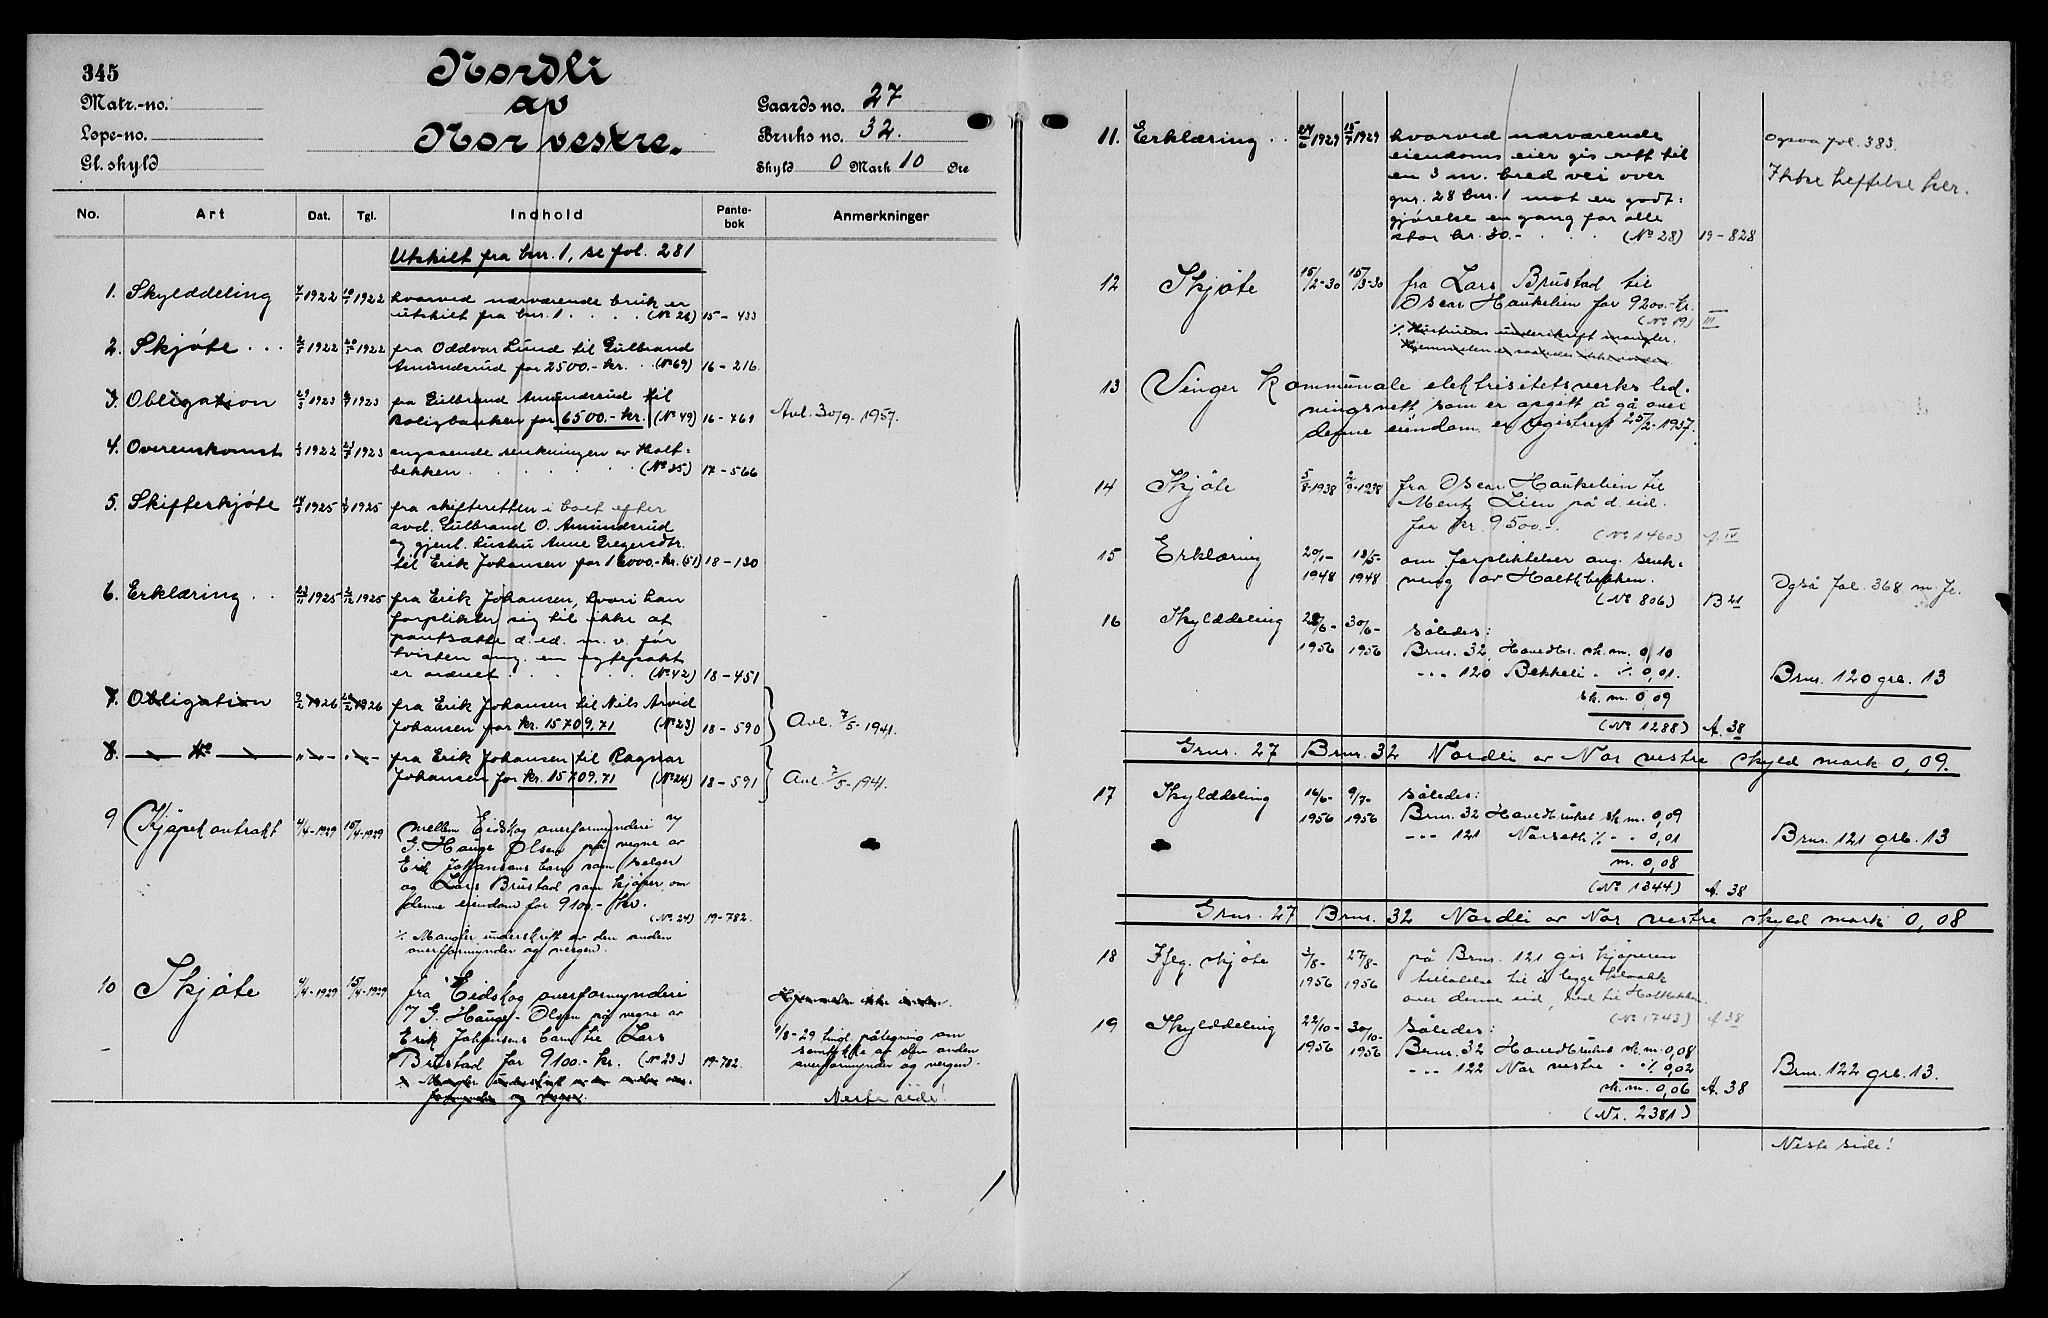 345
Nordli
av
Nor vestre.
Matr.-no.
Løpe-no.
Gl. skyld
Gaards no. 27
Bruks no. 32.
Skyld 0 Mark 10 Øre
No. Art Dat. Tgl. Indhold Pante-bok Anmerkninger
Utskilt fra bnr. 1, se fol. 281
1. Skylddeling 1922 1922 hvorved nærværende bruk er
utskilt fra bnr. 1 . . . . 15 – 433
2. Skjøte . . . 1922 1922 fra Oddvar Lund til Gulbrand
Amundsrud for 2500.- kr. . (No 69) 16 – 216
3. Obligation 1923 1923 fra Gulbrand Amundsrud til
Boligbanken for 6500.- kr. (No 49) 16 – 761 Avl. 30/9. 1957.
4. Overenskomst 1922 1923 angaaende senkningen av Holt-
bekken . . . . . . (No 35) 17 – 566
5. Skifteskjøte 1925 1925 fra skifteretten i boet efter
avd. Gulbrand O. Amundsrud
og gjenl. hustru Anne Gregersdtr.
til Erik Johansen for 16000.- kr. (51) 18 – 130
6. Erklæring . . 1925 1925 fra Erik Johansen, hvori han
forplikter sig til ikke at
pantsætte d. ed. m. v. før
tvisten ang. en egtepakt
er ordnet . . . . . (No 42) 18 – 451
7. Obligation 1926 1926 fra Erik Johansen til Nils Arvid
Johansen for kr. 15709,71 (No 23) 18 – 590 Avl. 7/5. 1941.
8. fra Erik Johansen til Ragnar
Johansen for kr. 15709.71 (No 24) 18 – 591 Avl. 7/5. 1941.
9 (Kjøpekontrakt 4/4-1929 15/4-1929 (mellem Eidskog overformynderi v/
G. Hauge Olsen på vegne av
Erik Johansens barn som selger
og Lars Brustad som kjøper, om
denne eiendom for 9100.- kr.
(No 24) 19-782.
% Mangler underskrift av den anden
overformynder og vergen.
10 Skjøte 4/4-1929 15/4-1929 fra Eidskog overformynderi
v/ G. Hauge-Olsen på vegne av
Erik Johansens barn til Lars
Brustad for 9100.- kr. (No 23) 19-782.
Mangler underskrift av den anden over-
formynder og vergen.
Hjemmelen ikke iorden.
1/8-29 tingl. påtegning om
samtykke av den anden
overformynder og vergen.
Neste side!
11. Erklæring . . 1929 1929 hvorved nærværende
eiendoms eier gis rett til
en 3 m. bred vei over
gnr. 28 bnr. 1 mot en godt-
gjørelse en gang for alle
stor kr. 30.- . . . (No 28) 19 – 828
Ogsaa fol. 383.
Ikke heftelse her.
12 Skjøte 15/2-30 15/3-30 fra Lars Brustad til
Oscar Haukelien for 9200.- kr.
(No 19) III
% Hustruens underskrift mangler.
Hjemmelen er saaledes ikke iorden.
13 Vinger kommunale elektrisitetsverks led-
ningsnett som er opgitt å gå over
denne eiendom er registrert 25/2-1937.
14 Skjøte 5/8-1938 2/9-1938 fra Oscar Haukelien til
Mentz Lien på d. eid.
for kr. 9500.-.
(No 1460) A IV
15 Erklæring 20/1- 13/5- om forpliktelser ang. senk-
1948 1948 ning av Holtbekken.
(No 806) B 21 Også fol. 368 m. fl.
16 Skylddeling 28/6- 30/6- således:
1956 1956 Bnr. 32 Hovedbr. sk. m. 0,10
-"- 120 Bekkeli . ./. 0,01.
sk. m. 0,09
(No 1288) A. 38
Bnr. 120 grb. 13
Gnr. 27 Bnr. 32 Nordli av Nor vestre skyld mark 0,09.
17 Skylddeling 16/6- 9/7- således:
1956 1956 Bnr. 32 Hovedbruket sk m. 0,09
-"- 121 Norseth ./. - - 0,01
m. 0,08
(No 1344) A. 38
Bnr. 121 grb. 13
Gnr. 27 Bnr. 32 Nordli av Nor vestre skyld mark 0,08
18 Iflg. skjøte 27/8- på Bnr. 121 gis kjøperen
1956 1956 tillatelse til å legge kloakk
over denne eid, ned til Holtbekken.
(No 1743) A 38
19 Skylddeling 22/10- 30/10- således:
1956 1956 Bnr. 32 Hovedbruket sk. m. 0,08
-"- 122 Nor vestre . ./. 0,02
sk. m. 0,06 A. 38
(Nr. 2381)
Bnr. 122 grb. 13.
Neste side!